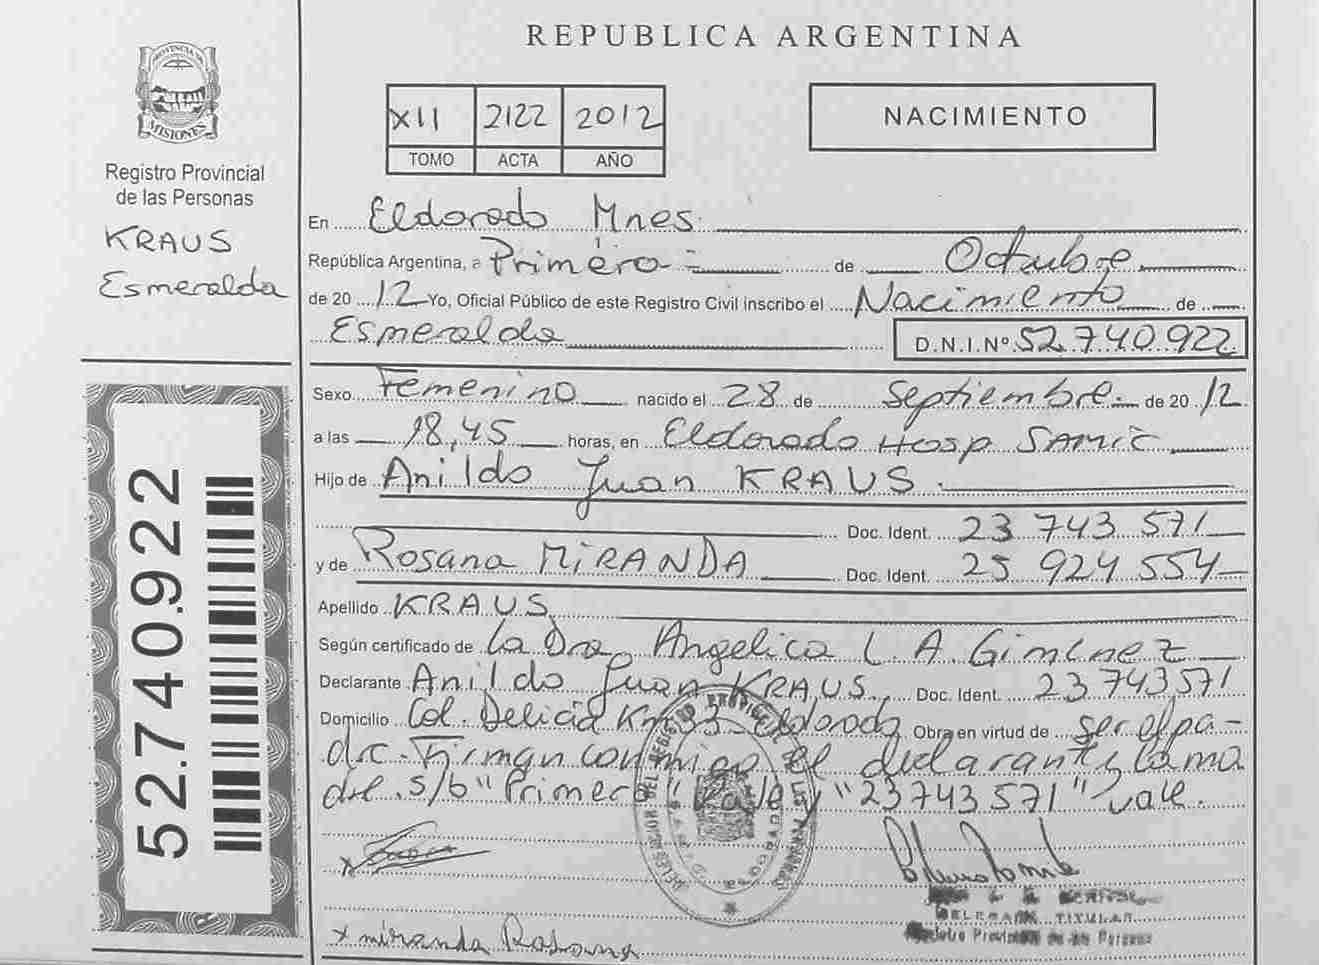 PROVINCIA DE
MISIONES
Registro Provincial
de las Personas
KRAUS
Esmeralda
52.740.922
REPUBLICA ARGENTINA
XII 2122 2012
TOMO ACTA AÑO
NACIMIENTO
En Eldorado Mnes.
República Argentina, a Primero de Octubre
de 2012 Yo, Oficial Público de este Registro Civil inscribo el Nacimiento de
Esmeralda D.N.I.Nº 52.740.922
Sexo Femenino nacido el 28 de Septiembre de 2012
a las 18,45 horas, en Eldorado Hosp SAMIC
Hijo de Anildo Juan KRAUS
Doc. Ident. 23 743 571
y de Rosana MiRANDA Doc. Ident. 25 924 554
Apellido KRAUS
Según certificado de la Dra Angelica L. A. Gimenez
Declarante Anildo Juan KRAUS Doc. Ident. 23 743,571
Domicilio Col. Delicia Km Eldorado Obra en virtud de ser el pa-
dre. Firman conmigo el declarante y la ma
dre. s/b "Primero" Vale y "23743571" vale.
x miranda Rosana
TITULAR